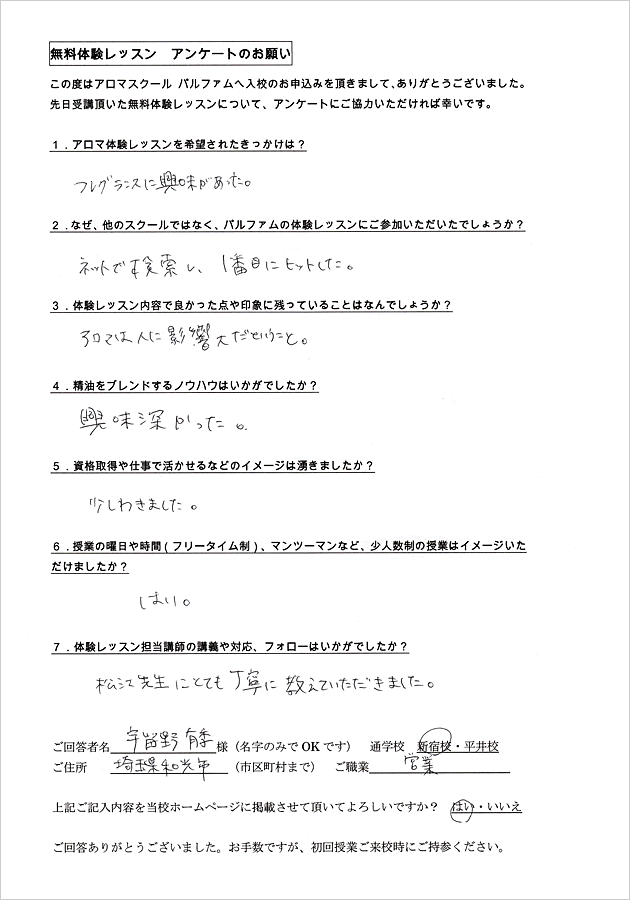 無料体験レッスン　アンケートのお願い
この度はアロマスクール パルファムへ入校のお申込みを頂きまして、ありがとうございました。
先日受講頂いた無料体験レッスンについて、アンケートにご協力いただければ幸いです。
１．アロマ体験レッスンを希望されたきっかけは？
フレグランスに興味があった。
２．なぜ、他のスクールではなく、パルファムの体験レッスンにご参加いただいたでしょうか？
ネットで検索し、1番目にヒットした。
３．体験レッスン内容で良かった点や印象に残っていることはなんでしょうか？
アロマは人に影響大だということ。
４．精油をブレンドするノウハウはいかがでしたか？
興味深かった。
５．資格取得や仕事で活かせるなどのイメージは湧きましたか？
少しわきました。
６．授業の曜日や時間（フリータイム制）、マンツーマンなど、少人数制の授業はイメージいた
だけましたか？
はい。
７．体験レッスン担当講師の講義や対応、フォローはいかがでしたか？
松江先生にとても丁寧に教えていただきました。
ご回答者名 宇留野 有季 様（名字のみでOKです）　通学校　新宿校・平井校
ご住所　埼玉県和光市　（市区町村まで）　ご職業 営業
上記ご記入内容を当校ホームページに掲載させて頂いてよろしいですか？　はい・いいえ
ご回答ありがとうございました。お手数ですが、初回授業ご来校時にご持参ください。